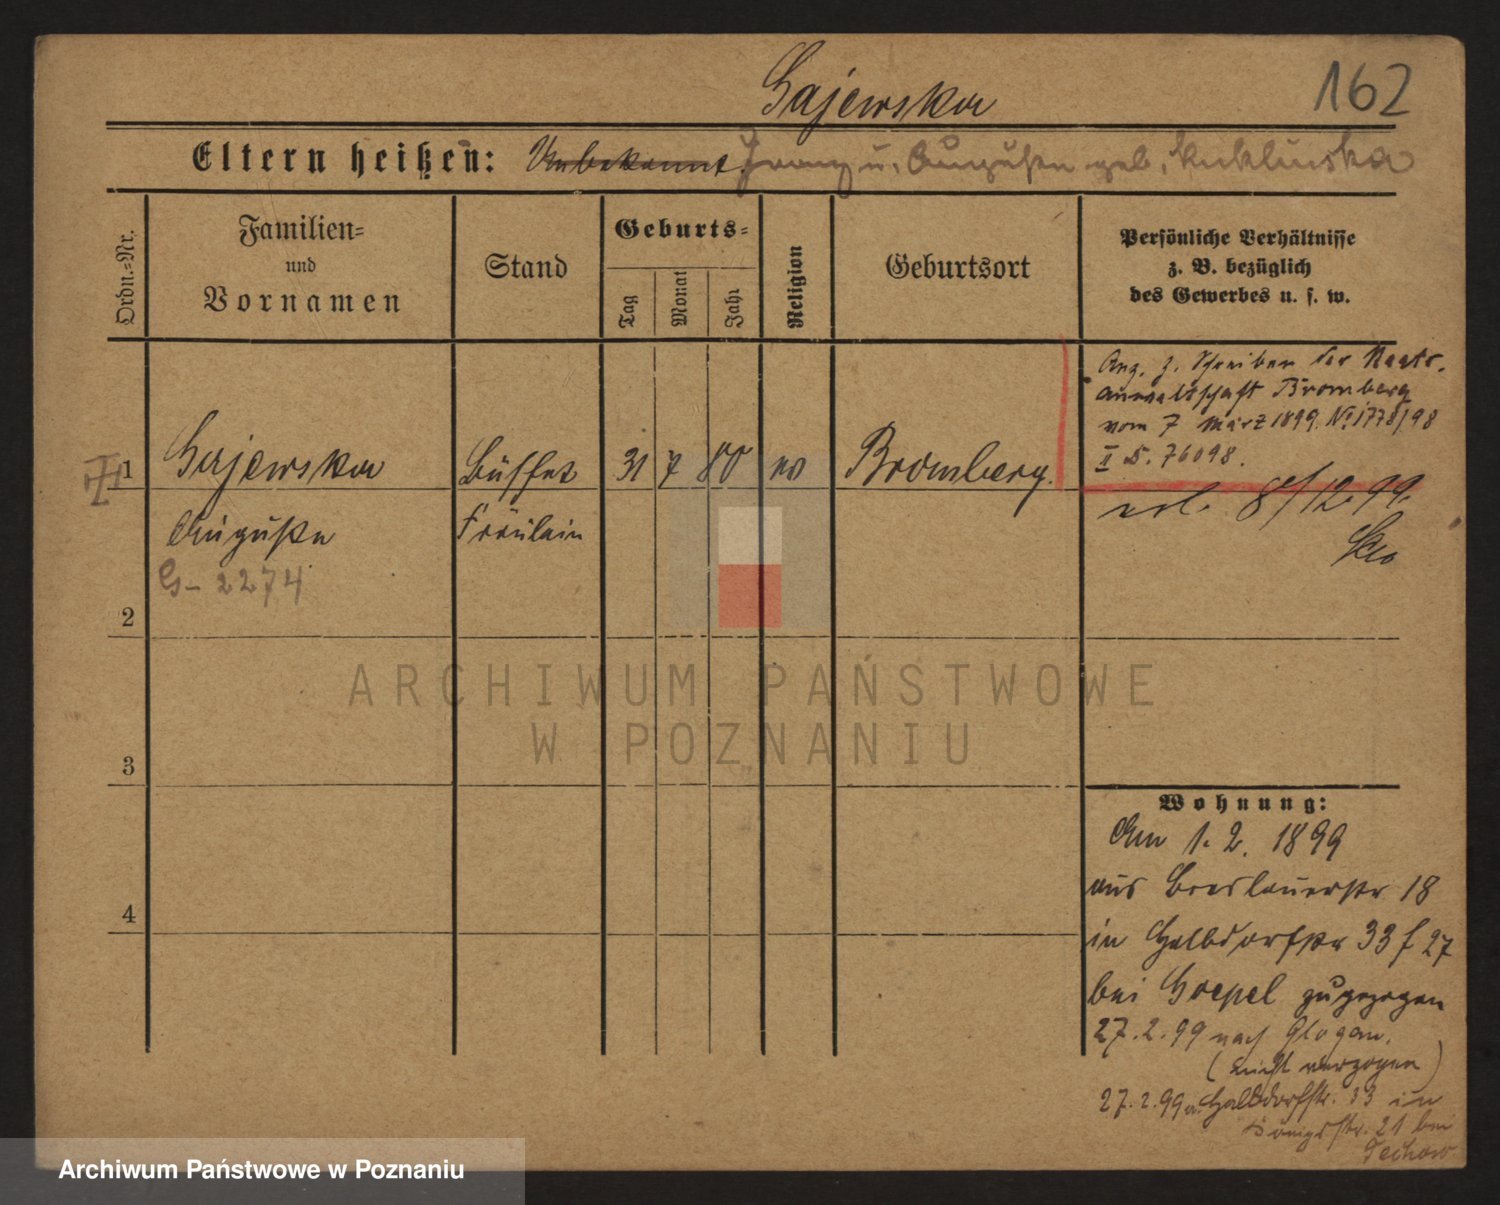 162
Gajewska
Eltern heißen: Unbekannt. Franz u. Auguste geb. Kuklinska
Ordn.=Nr.
Familien=
und
Vornamen
Stand
Geburts=
Tag
Monat
Jahr
Religion
Geburtsort
Persönliche Verhältnisse
z. B. bezüglich
des Gewerbes u. s. w.
Ang. z. Schreiben der Staats-
anwaltschaft Bromberg
vom 7 März 1899. No 1778/98
II 5. 76098.
1 Gajewska Büffet 31 7 80 ev Bromberg.
erl. 8/12 99.
Auguste Fräulein
G- 2274
2
ARCHIWUM PAŃSTWOWE
W POZNANIU
3
Wohnung:
Am 1. 2. 1899
aus Breslauerstr 18
4
in Halbdorfstr 33 f 27
bei Goepel zugezogen
27. 2. 99 nach Glogau.
(nicht verzogen)
27. 2. 99 a. Halbdorfstr. 33 in
Königsstr. 21 bei
Techow
Archiwum Państwowe w Poznaniu